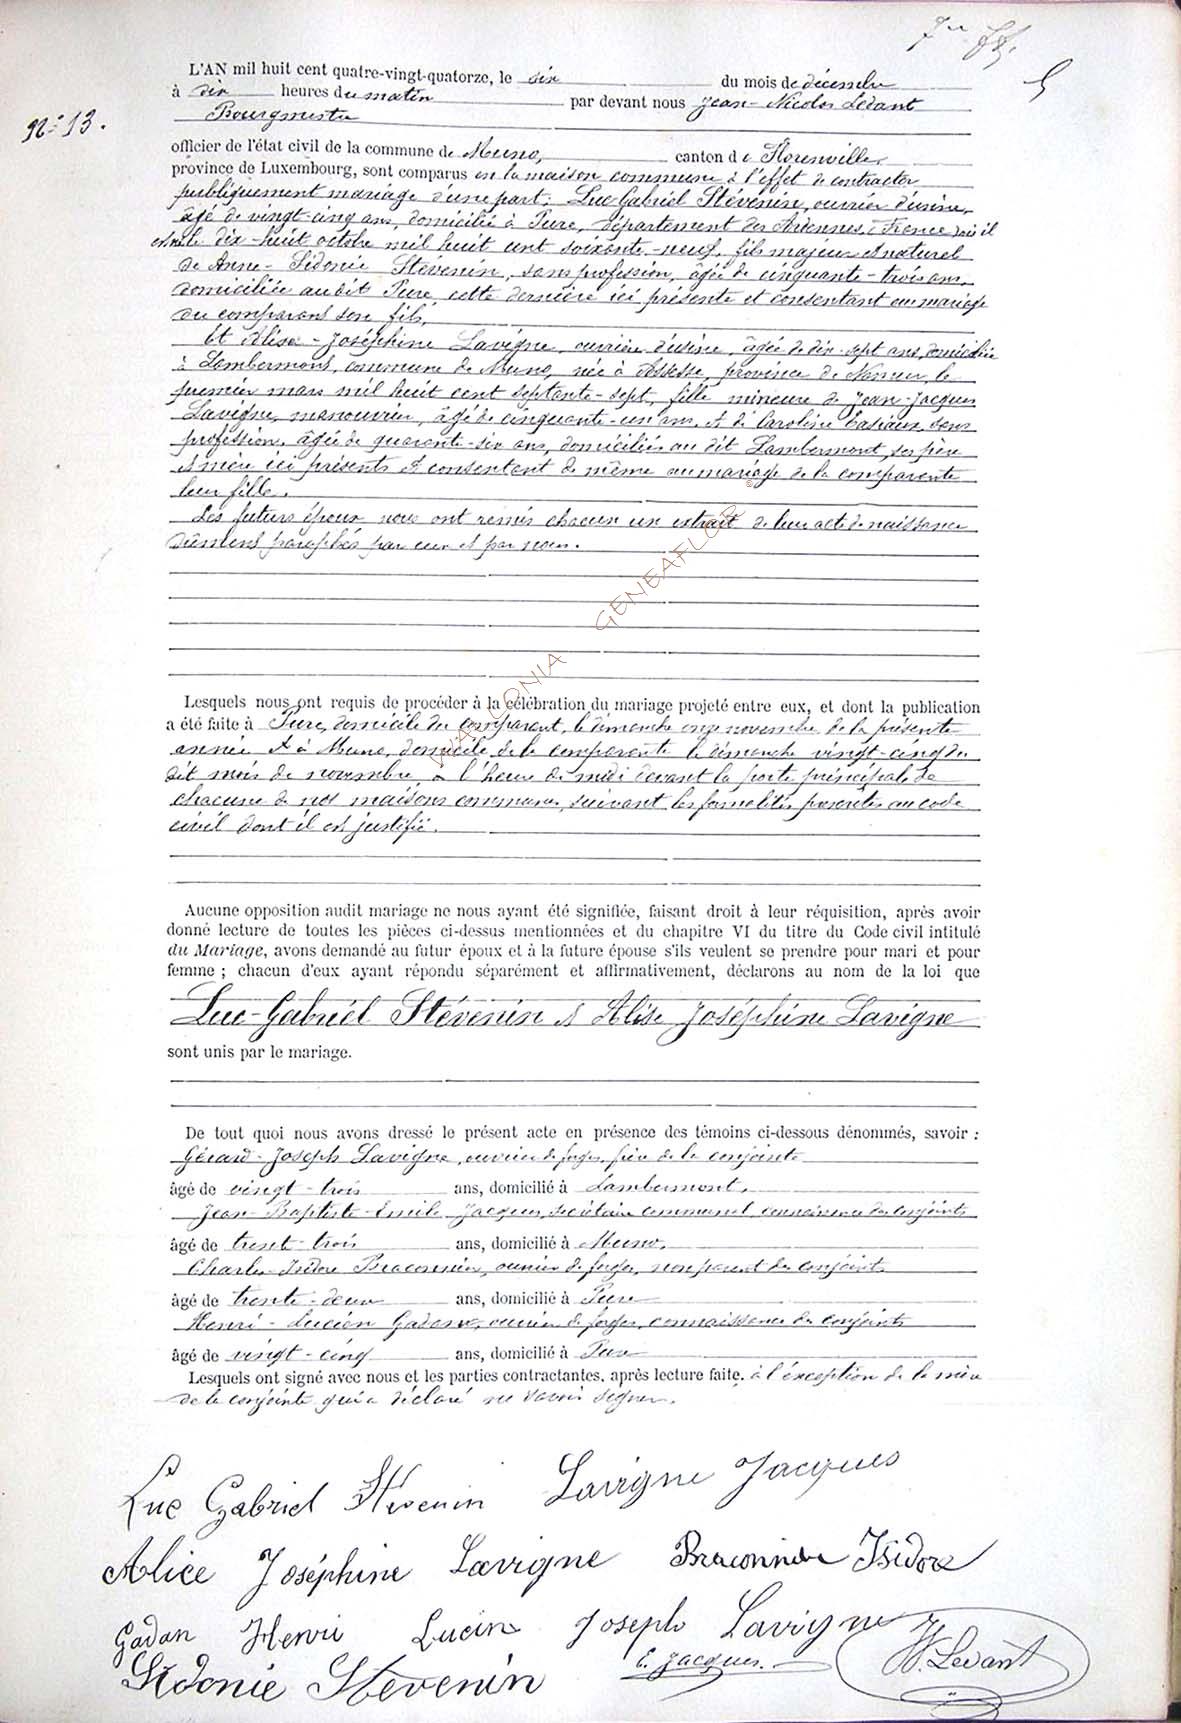 7me ff.
5
N° 13.
L'AN mil huit cent quatre-vingt-quatorze, le six du mois de décembre
à dix heures du matin par devant nous Jean-Nicolas Ledant
Bourgmestre
officier de l'état civil de la commune de Muno, canton de Florenville,
province de Luxembourg, sont comparus en la maison commune à l'effet de contracter
publiquement mariage d'une part: Luc-Gabriel Stévenin, ouvrier d'usine,
âgé de vingt-cinq ans, domicilié à Pure, département des Ardennes, France où il
est né le dix-huit octobre mil huit cent soixante-neuf, fils majeur et naturel
de Anne-Sidonie Stévenin, sans profession, âgée de cinquante-trois ans,
domiciliée audit Pure, cette dernière ici présente et consentant au mariage
du comparant son fils,
Et Alise-Joséphine Lavigne, ouvrière d'usine, âgée de dix-sept ans, domiciliée
à Lambermont, commune de Muno, née à Assesse, province de Namur le
premier mars mil huit cent septante-sept, fille mineure de Jean-Jacques
Lavigne, manouvrier, âgé de cinquante-un ans, et de Caroline Casiaux, sans
profession, âgée de quarante-six ans, domiciliés au dit Lambermont, ses père
et mère ici présents et consentant de même au mariage de la comparante
leur fille.
Les futurs époux nous ont remis chacun un extrait de leur acte de naissance
dûment paraphés par eux et par nous.
WALLONIA GENEAFLOR ©
Lesquels nous ont requis de procéder à la célébration du mariage projeté entre eux, et dont la publication
a été faite à Pure, domicile du comparant, le dimanche onze novembre de la présente
année et à Muno, domicile de la comparante le dimanche vingt-cinq du
dit mois de novembre à l'heure de midi devant la porte principale de
chacune de nos maisons communes, suivant les formalités prescrites au code
civil dont il est justifié.
Aucune opposition audit mariage ne nous ayant été signifiée, faisant droit à leur réquisition, après avoir
donné lecture de toutes les pièces ci-dessus mentionnées et du chapitre VI du titre du Code civil intitulé
du Mariage, avons demandé au futur époux et à la future épouse s'ils veulent se prendre pour mari et pour
femme ; chacun d'eux ayant répondu séparément et affirmativement, déclarons au nom de la loi que
Luc-Gabriel Stévenin et Alise Joséphine Lavigne
sont unis par le mariage.
De tout quoi nous avons dressé le présent acte en présence des témoins ci-dessous dénommés, savoir :
Gérard-Joseph Lavigne, ouvrier de forges, frère de la conjointe
âgé de vingt-trois ans, domicilié à Lambermont,
Jean-Baptiste-Emile Jacques, secrétaire communal, connaissance des conjoints
âgé de trente-trois ans, domicilié à Muno,
Charles-Isidore Braconnier, ouvrier de forges, non parent des conjoints
âgé de trente-deux ans, domicilié à Pure
Henri-Lucien Gadan, ouvrier de forges, connaissance des conjoints
âgé de vingt-cinq ans, domicilié à Pure
Lesquels ont signé avec nous et les parties contractantes, après lecture faite, à l'exception de la mère
de la conjointe qui a déclaré ne savoir signer.
Luc Gabriel Stevenin Lavigne Jacques
Alice Joséphine Lavigne Braconnier Isidore
Gadan Henri Lucien Joseph Lavigne
Sidonie Stevenin E. Jacques. N. Ledant